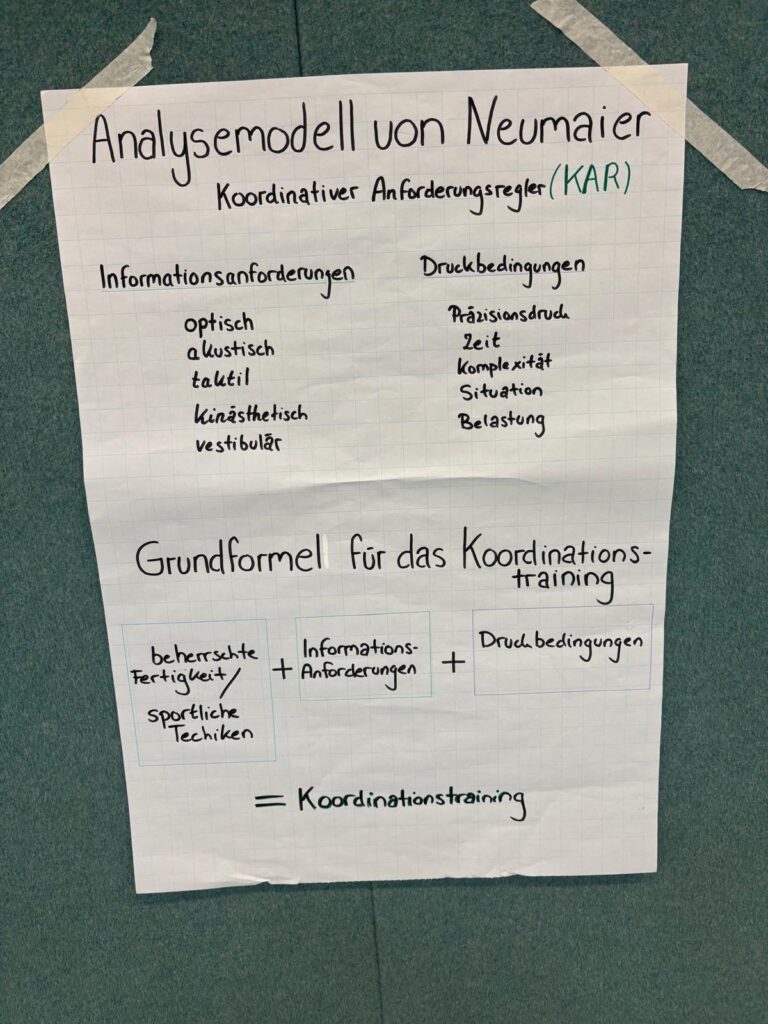 Analysemodell von Neumaier
Koordinativer Anforderungsregler (KAR)
Informationsanforderungen
optisch
akustisch
taktil
kinästhetisch
vestibulär
Druckbedingungen
Präzisionsdruck
Zeit
Komplexität
Situation
Belastung
Grundformel für das Koordinations-
training
beherrschte
Fertigkeit/
sportliche
Techiken
+
Informations-
Anforderungen
+
Druckbedingungen
= Koordinationstraining